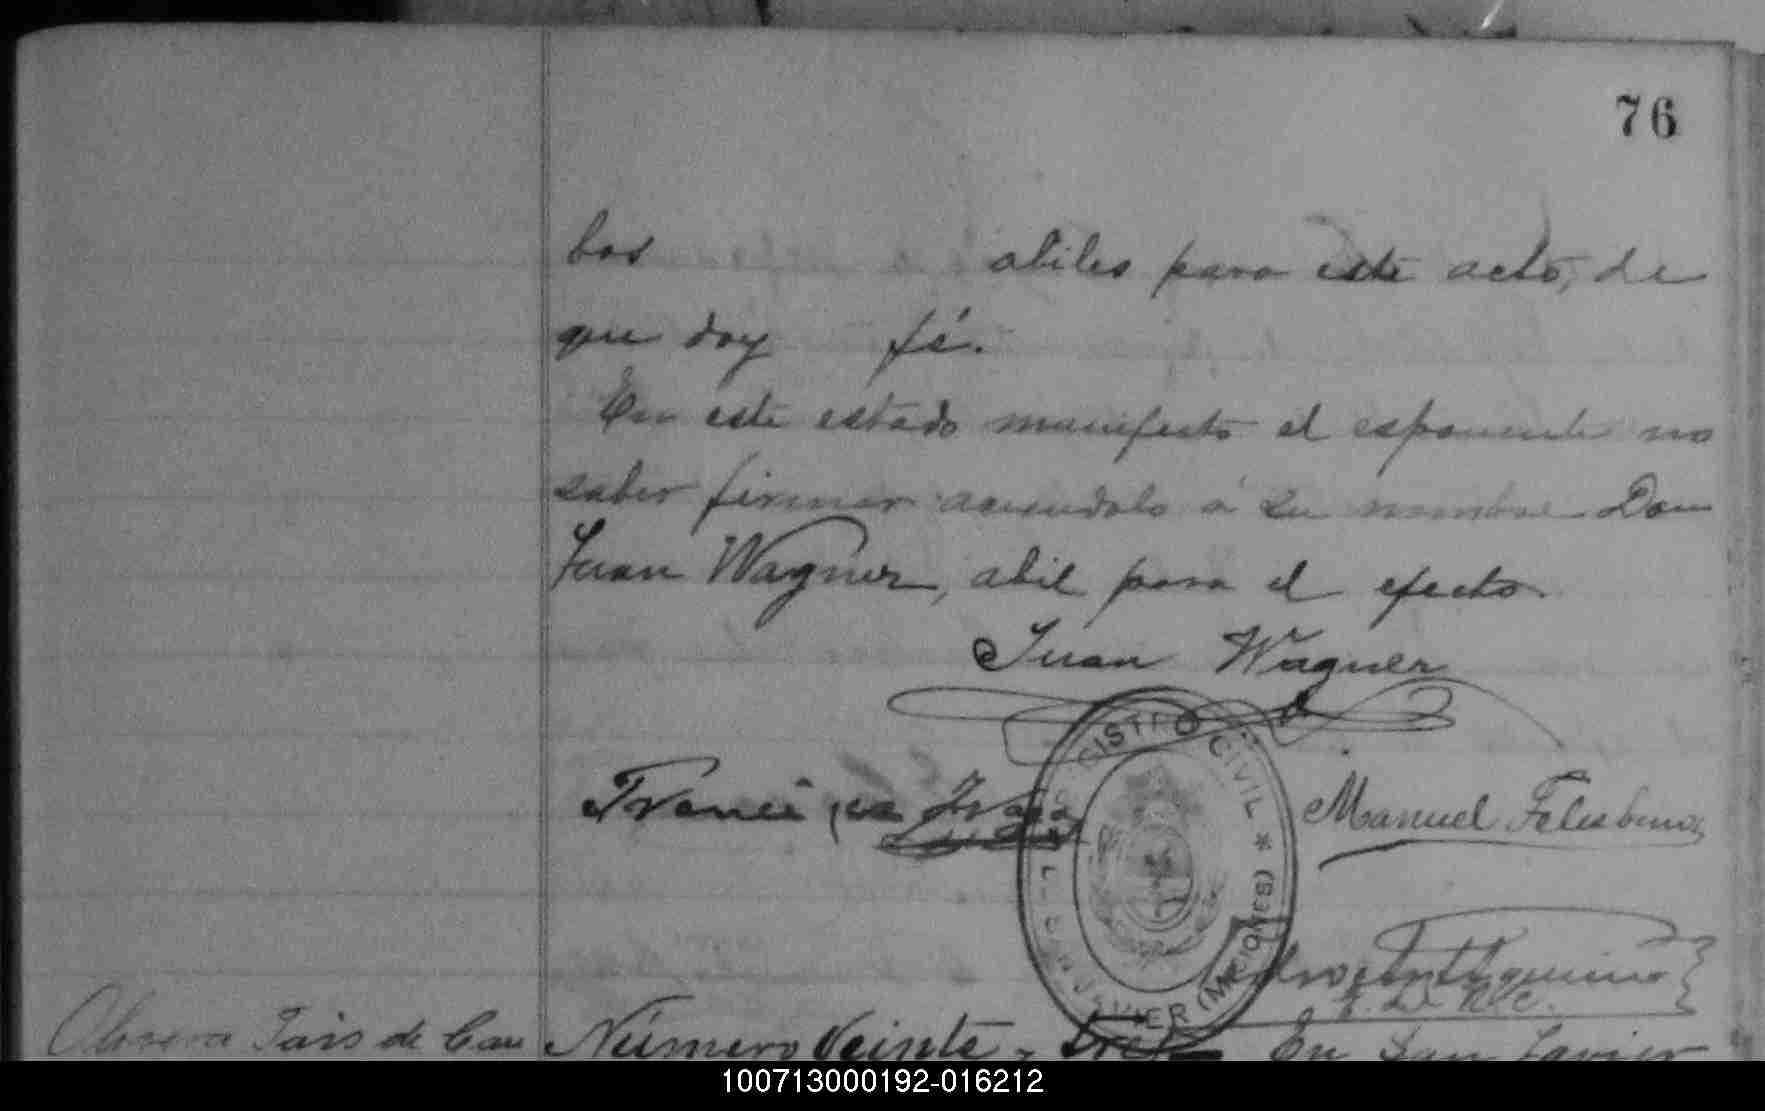 76
bos abiles para este acto, de
que doy fé.
En este estado manifesto el esponente no
saber firmar aciendolo á su nombre Don
Juan Wagner, abil para el efecto.
Juan Wagner
REGISTRO CIVIL * SAN JAVIER (MISIONES)
Manuel
J. de R. C.
de
Número Veinte y tres En San Javier
100713000192-016212